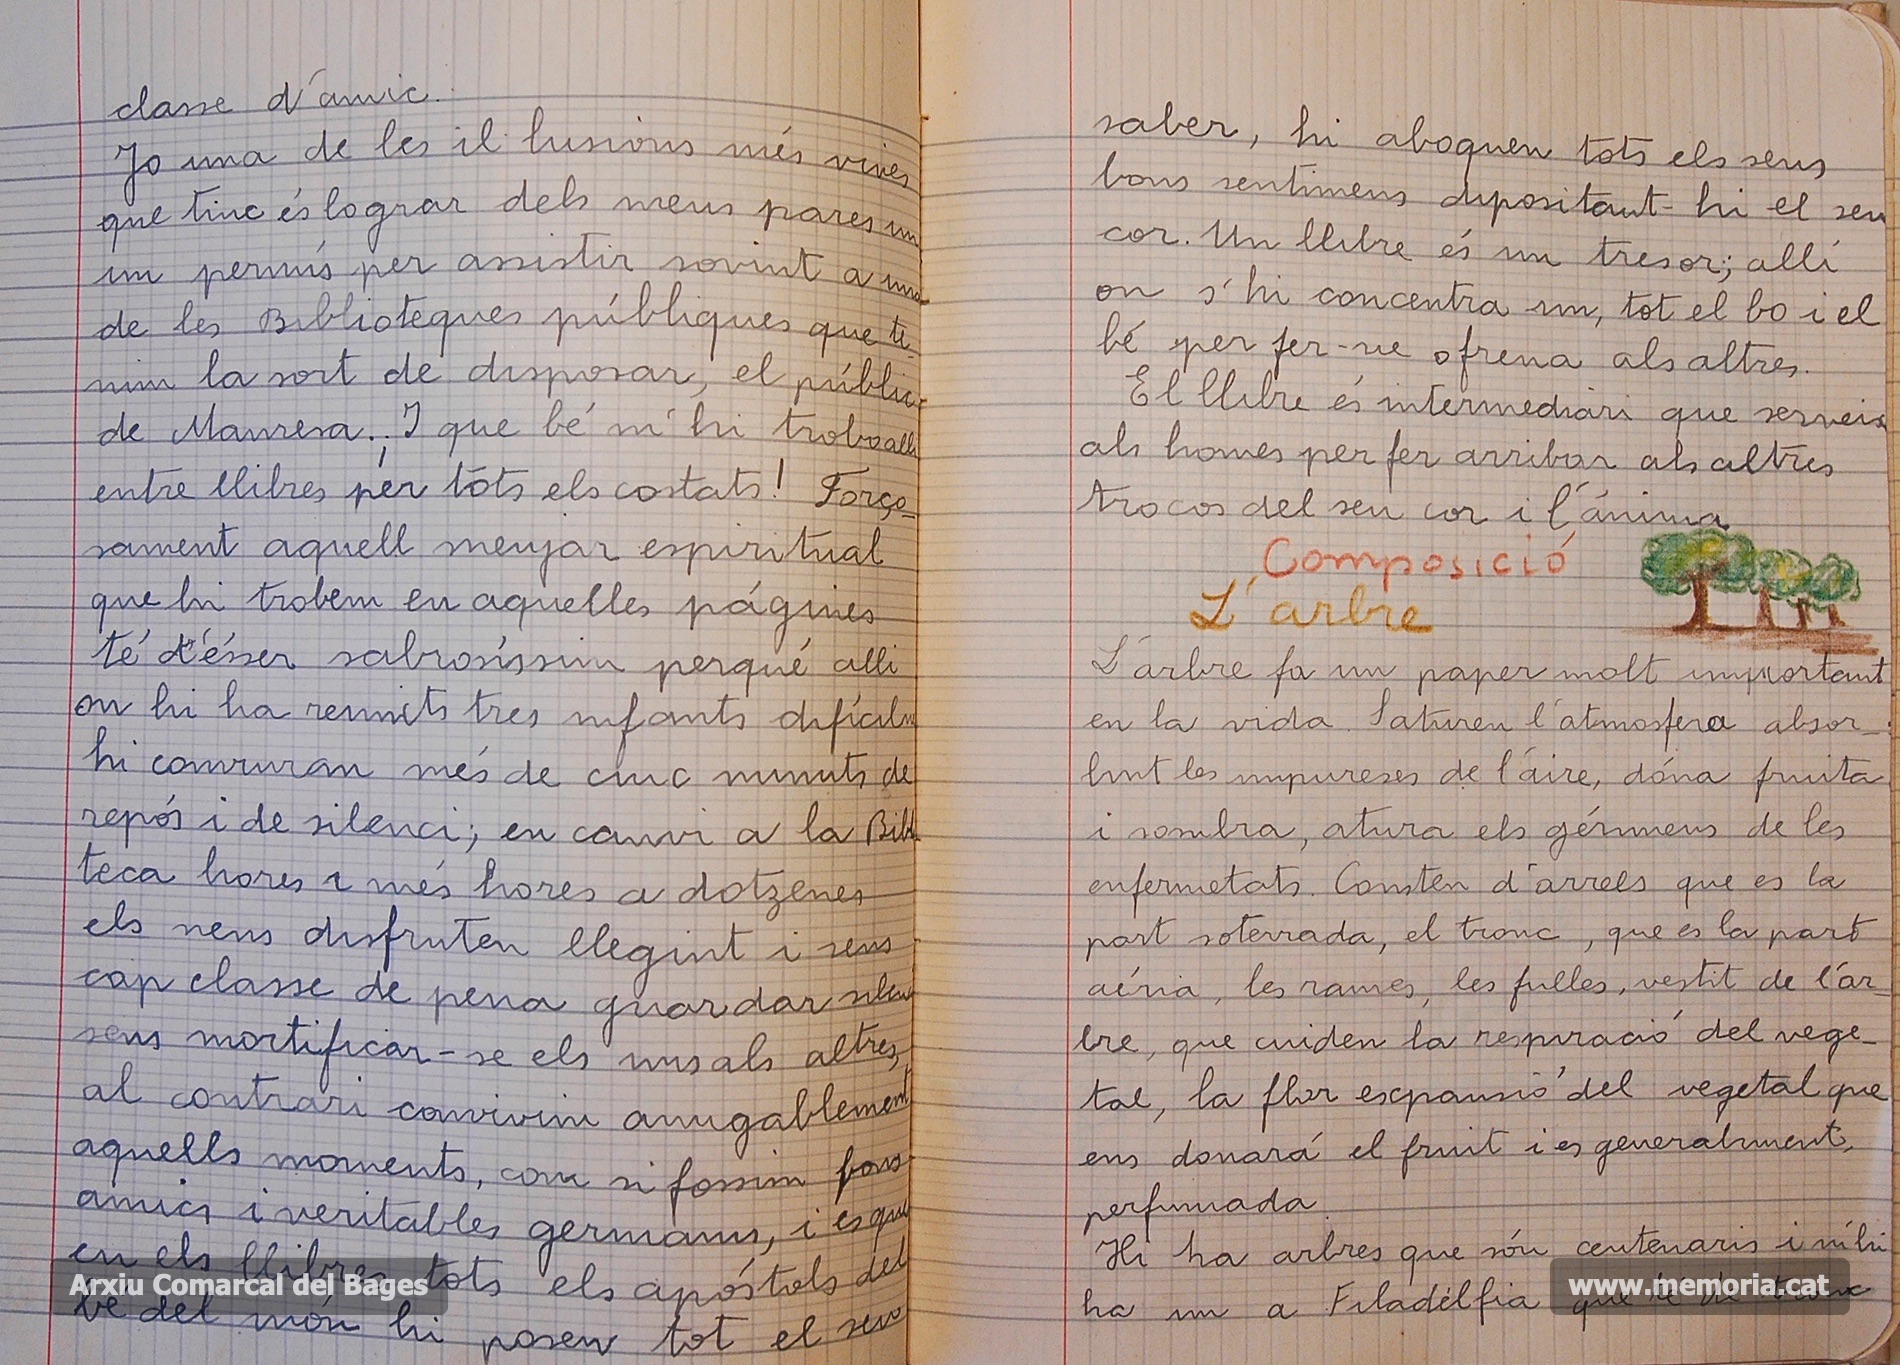 classe d'amic.
Jo una de les il·lusions més vives
que tinc és lograr dels meus pares un
un permís per assistir sovint a una
de les Biblioteques públiques que te-
nim la sort de disposar, el públic
de Manresa. I que bé m'hi trobo allí
entre llibres per tots els costats! Forço-
sament aquell menjar espiritual
que hi trobem en aquelles págines
té d'ésser sabrosíssim perqué allí
on hi ha reunits tres infants difícilm
hi conviuran més de cinc minuts de
repós i de silenci; en canvi a la Bibl
teca hores i més hores a dotzenes
els nens disfruten llegint i sens
cap classe de pena guardar silenci
sens mortificar-se els uns als altres,
al contrari convivim amigablement
aquells moments, com si fossim bons
amics i veritables germans, i és que
en els llibres tots els apóstols del
bé del món hi posen tot el seu
saber, hi aboquen tots els seus
bons sentimens dipositant-hi el seu
cor. Un llibre és un tresor; allí
on s'hi concentra un, tot el bo i el
bé per fer-ne ofrena als altres.
El llibre és intermediari que serveix
als homes per fer arribar als altres
trocos del seu cor i l'ánima
Composició
L'arbre
L'árbre fa un paper molt important
en la vida. Saturen l'atmosfera absor-
bint les impureses de l'aire, dóna fruita
i sombra, atura els gérmens de les
enfermetats. Consten d'arrels que es la
part soterrada, el tronc, que es la part
aéria, les rames, les fulles, vestit de l'ár-
bre, que cuiden la respiració del vege-
tal, la flor escpansió del vegetal que
ens donará el fruit i es generalment,
perfumada.
Hi ha arbres que són centenaris i n'hi
ha un a Filadélfia que té un tronc
Arxiu Comarcal del Bages
www.memoria.cat